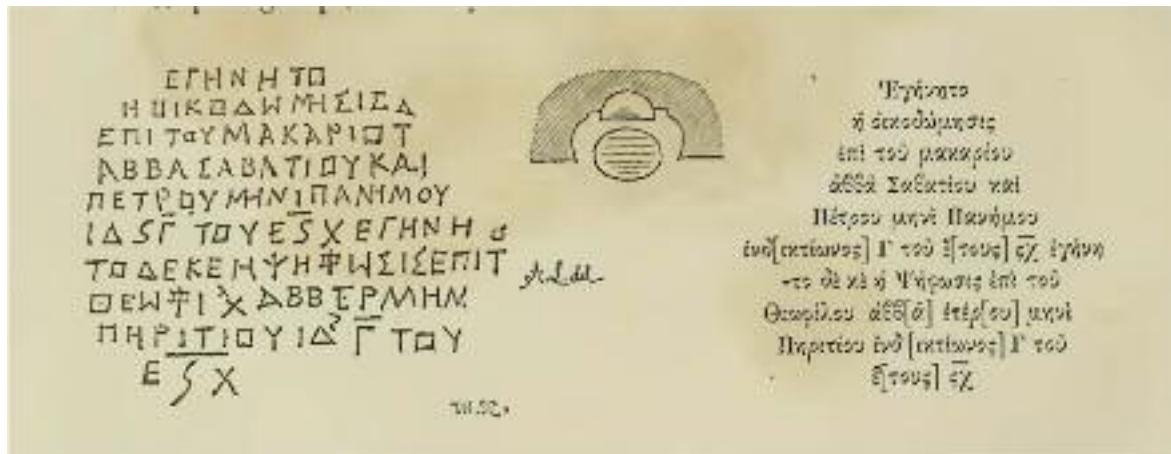 ΕΓΗΝΗΤΟ
ΗΟΙΚΟΔΩΜΗΣΙΣΔ
ΕΠΙΤΟΥΜΑΚΑΡΙΟΤ
ΑΒΒΑΣΑΒΑΤΙΟΥΚΑΙ
ΠΕΤΡΟΥΜΗΝΙΠΑΝΗΜΟΥ
ΙΔSΓ ΤΟΥΕSΧΕΓΗΝΗ
ΤΟΔΕΚΕΗΨΗΦΩΣΙΣΕΠΙΤ
ΘΕΩΦΙΧ ΑΒΒΕΡΜΗΝ
ΠΗΡΙΤΙΟΥΙΔ Γ ΤΟΥ
ΕSΧ
A.L. del.
Ἐγήνητο
ἡ οἰκοδώμησις
ἐπὶ τοῦ μακαρίου
ἀββᾶ Σαβατίου καὶ
Πέτρου μηνὶ Πανήμου
ἰνδ[ικτίωνος] Γ τοῦ ἔ[τους] ςχ ἐγήνη
-το δὲ κὲ ἡ Ψήφωσις ἐπὶ τοῦ
Θεωφίλου ἀββ[ᾶ] ἑτέρ[ου] μηνὶ
Πηριτίου ἰνδ[ικτίωνος] Γ τοῦ
ἔ[τους] ςχ